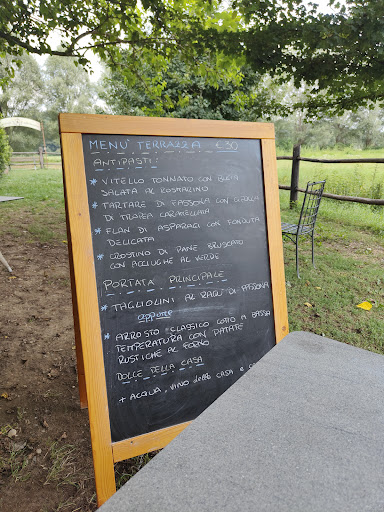 MENU' TERRAZZA € 30
ANTIPASTI:
* VITELLO TONNATO CON
SALATA AL ROSMARINO
* TARTARE DI FASSONA CON CIPOLLA
DI TROPEA CARAMELLATA
* FLAN DI ASPARAGI CON FONDUTA
DELICATA
* CROSTINO DI PANE BRUSCATO
CON ACCIUGHE AL VERDE
PORTATA PRINCIPALE
* TAGLIOLINI AL RAGÙ DI FASSONA
oppure
* ARROSTO CLASSICO COTTO A BASSA
TEMPERATURA CON PATATE
RUSTICHE AL FORNO
DOLCE DELLA CASA
+ ACQUA, VINO della CASA e